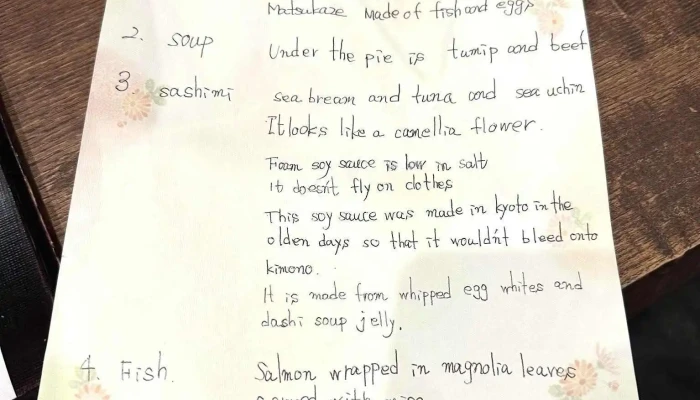 Matsukaze Made of fish and eggs
2. soup Under the pie is turnip and beef
3. sashimi sea bream and tuna and sea uchin
It looks like a camellia flower.
Foam soy sauce is low in salt
it doesn't fly on clothes
This soy sauce was made in kyoto in the
olden days so that it wouldn't bleed onto
kimono.
It is made from whipped egg whites and
dashi soup jelly.
4. Fish. Salmon wrapped in magnolia leaves
with